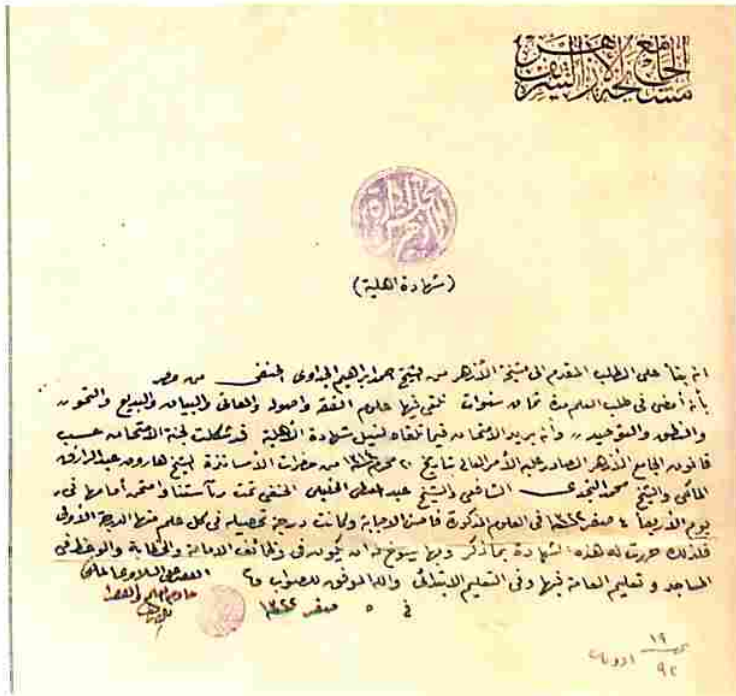 الجامع الأزهر
مشيخة الشريف
(شهادة اهلية)
انه بناً على الطلب المقدم الى مشيخة الأزهر من الشيخ احمد ابراهيم الجداوى الحنفى من مصر
بأنه أمضى فى طلب العلم مدة ثمان سنوات تلقى فيها علوم الفقه واصوله والمعانى والبيان والبديع والنحو
والمنطق والتوحيد وأنه يريد الامتحان فيما تلقاه لنيل شهادة الأهلية قد شكلت لجنة الامتحان حسب
قانون الجامع الأزهر الصادر عليه الأمر العالى بتاريخ ٢٠ محرم من حضرات الأساتذة الشيخ هارون عبد الرازق
المالكى والشيخ محمد النجدى الشافعى والشيخ عبد المعطى الخليلى الحنفى تحت رآستنا وامتحن أمامها فى
يوم الأربعاً ٤ صفر ١٣٢٢ فى العلوم المذكورة فاحسن الاجابة وكانت درجة تحصيله فى كل علم منها الدرجة الأولى
فلذلك حررت له هذه الشهادة بما ذكر وبها يسوغ له ان يكون فى وظائف الامامة والخطابة والوعظ فى
المساجد وتعليم العامة فيها وفى التعليم الابتدائى والله الموفق للصواب
فى ٥ صفر ١٣٢٢
١٩
٩٢